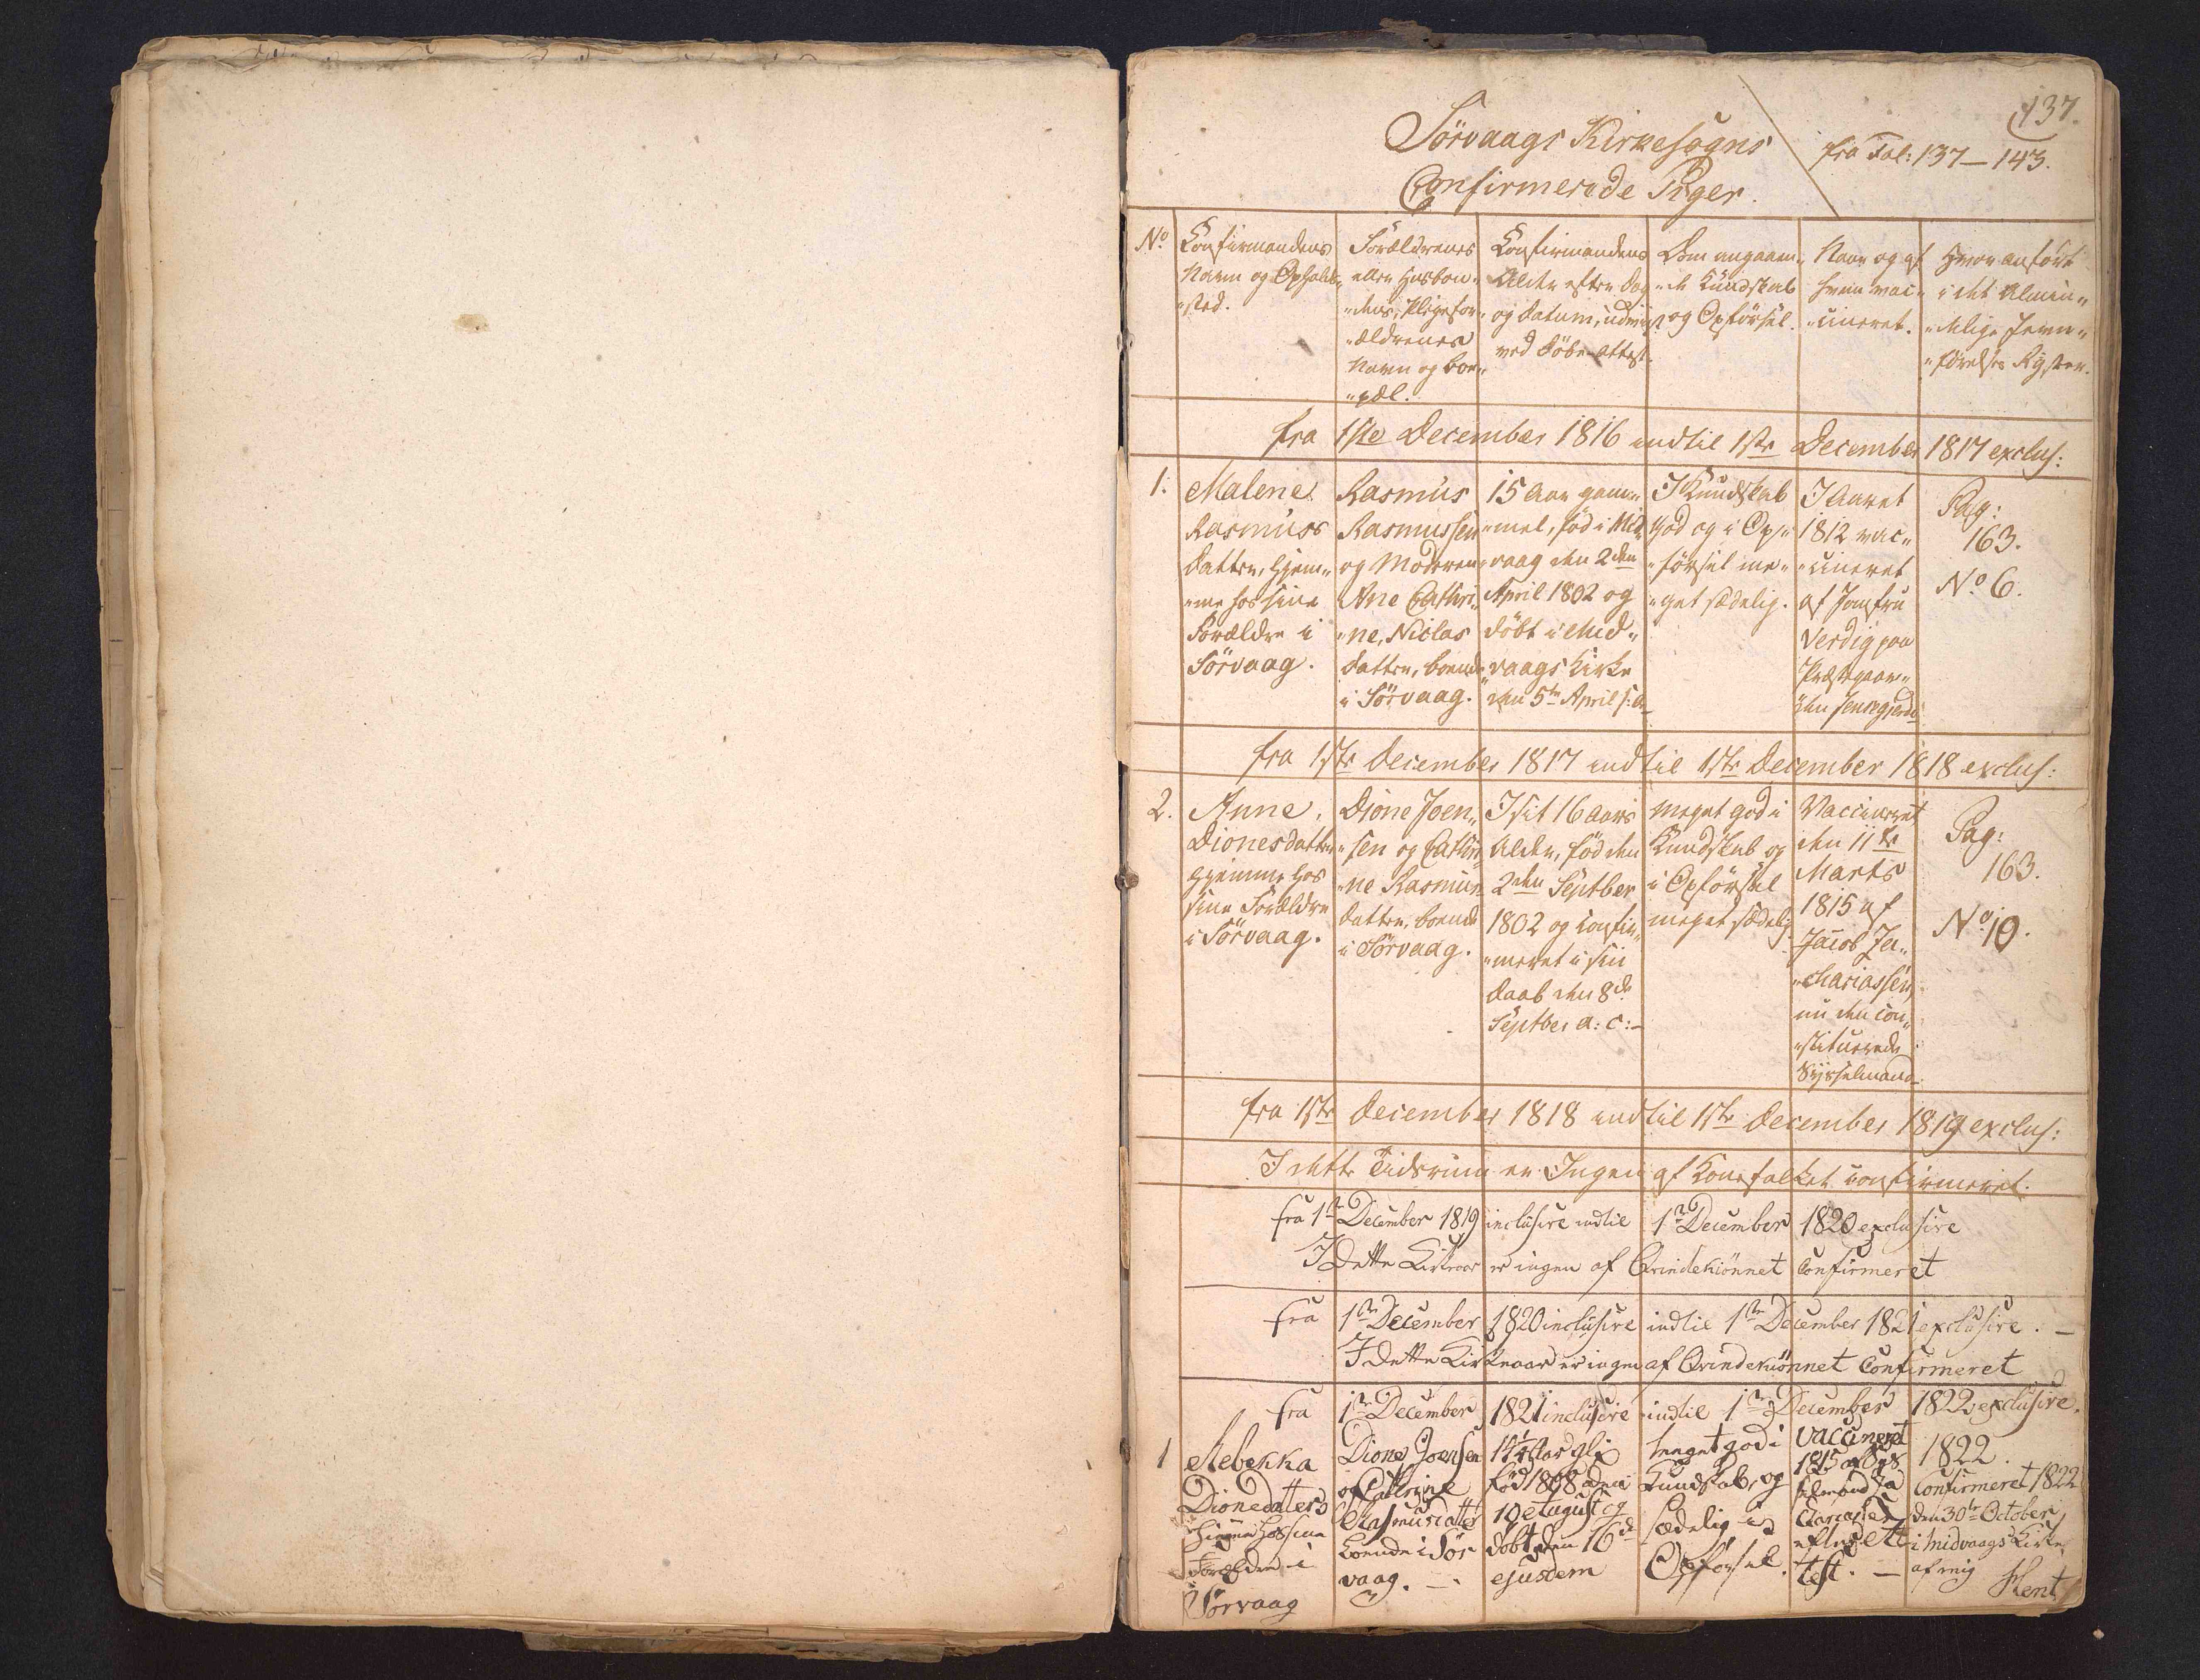 137.
Sörvaags Kirkesogns
fra Fol: 137 — 143.
Confirmerede Piger.
No.
Confirmandens
Navn og Opholds„
„sted.
Forældrenes
eller Husbon„
„dens, Plejefor„
„ældrenes
Navn og Boe„
„pæl.
Confirmandens
Alder efter Dag
og Datum, udviist
ved Döbe-Attest.
Dom angaaen„
„de Kundskab
og Opförsel.
Naar og af
hvem vac„
„cineret.
Hvor anfört
i det Almin„
„delige Jevn„
„förelses Register.
fra 1ste December 1816 indtil 1ste December 1817 exclus:
1.
Malene
Rasmus
Datter, hjem„
„me hos sine
Forældre i
Sörvaag.
Rasmus
Rasmussen
og Moderen
Ane Cathri„
„ne, Niclas
Datter, boende
i Sörvaag.
15 Aar gam„
„mel, föd i Mid„
„vaag den 2den
April 1802 og
döbt i Mid„
„vaags Kirke
den 5te April s: a.
I Kundskab
god og i Op„
„försel me„
„get sædelig.
I Aaret
1812 vac„
„cineret
af Jomfru
Verdig paa
Præstegaar„
„den Jensegjerde
Pag:
163.
No 6.
fra 1ste December 1817 indtil 1ste December 1818 exclus:
2.
Anne
Dionesdatter
hjemme hos
sine Forældre
i Sörvaag.
Dione Joen„
„sen og Cathri„
„ne Rasmus
Datter, boende
i Sörvaag.
I sit 16 Aars
Alder, föd den
2den Septber
1802 og confir„
„meret i sin
Daab den 8de
Septber a: c:—
Meget god i
Kundskab og
i Opförsel
meget sædelig
Vaccineret
den 11te
Marts
1815 af
Jacob Za„
„chariassen,
nu den con„
„stituerede
Sysselmand.
Pag:
163.
No 10.
fra 1ste December 1818 indtil 1ste December 1819 exclus:
I dette Tidsrum er Ingen af Konefolket confirmeret.
fra 1te December 1819 inclusive indtil 1te December 1820 exclusive
I Dette Kirkeaar er ingen af Qvindekiönnet Confirmeret
fra 1te December 1820 inclusive indtil 1te December 1821 exclusive. —
I Dette Kirkeaar er ingen af Qvindekiönnet Confirmeret
fra 1te December 1821 inclusive indtil 1te December 1822 exclusive.
1
Rebekka
Dionedatter
hiemme hos sine
Forældre i
Sörvaag
Dione Joensen
og Cathrine
Rasmusdatter
boende i Sör
vaag. —
14¼ Aar
född 1808 den
10 August og
döbt den 16de
ejusdem
meget god i
Kundskab, og
sædelig i
Opförsel.
Vaccineret
1815 af Sys
selmand Za
chariassen
efter Att
test. —
1822.
Confirmeret 1822
den 30te October
i Midvaags Kirke
af mig